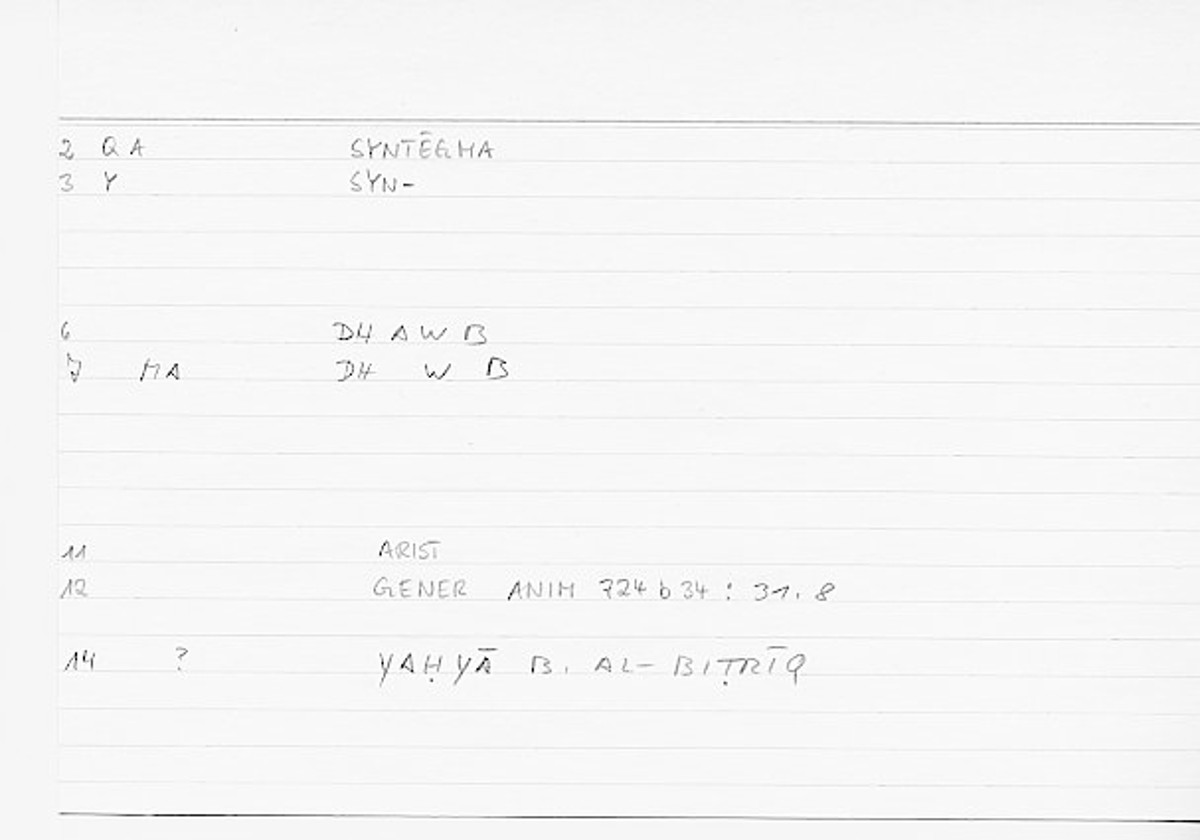 2 Q A SYNTĒGMA
3 Y SYN-
6 DH A W B
7 MA DH W B
11 ARIST
12 GENER ANIM 724 b 34 : 31. 8
14 ? YAḤYĀ B. AL-BIṬRĪQ